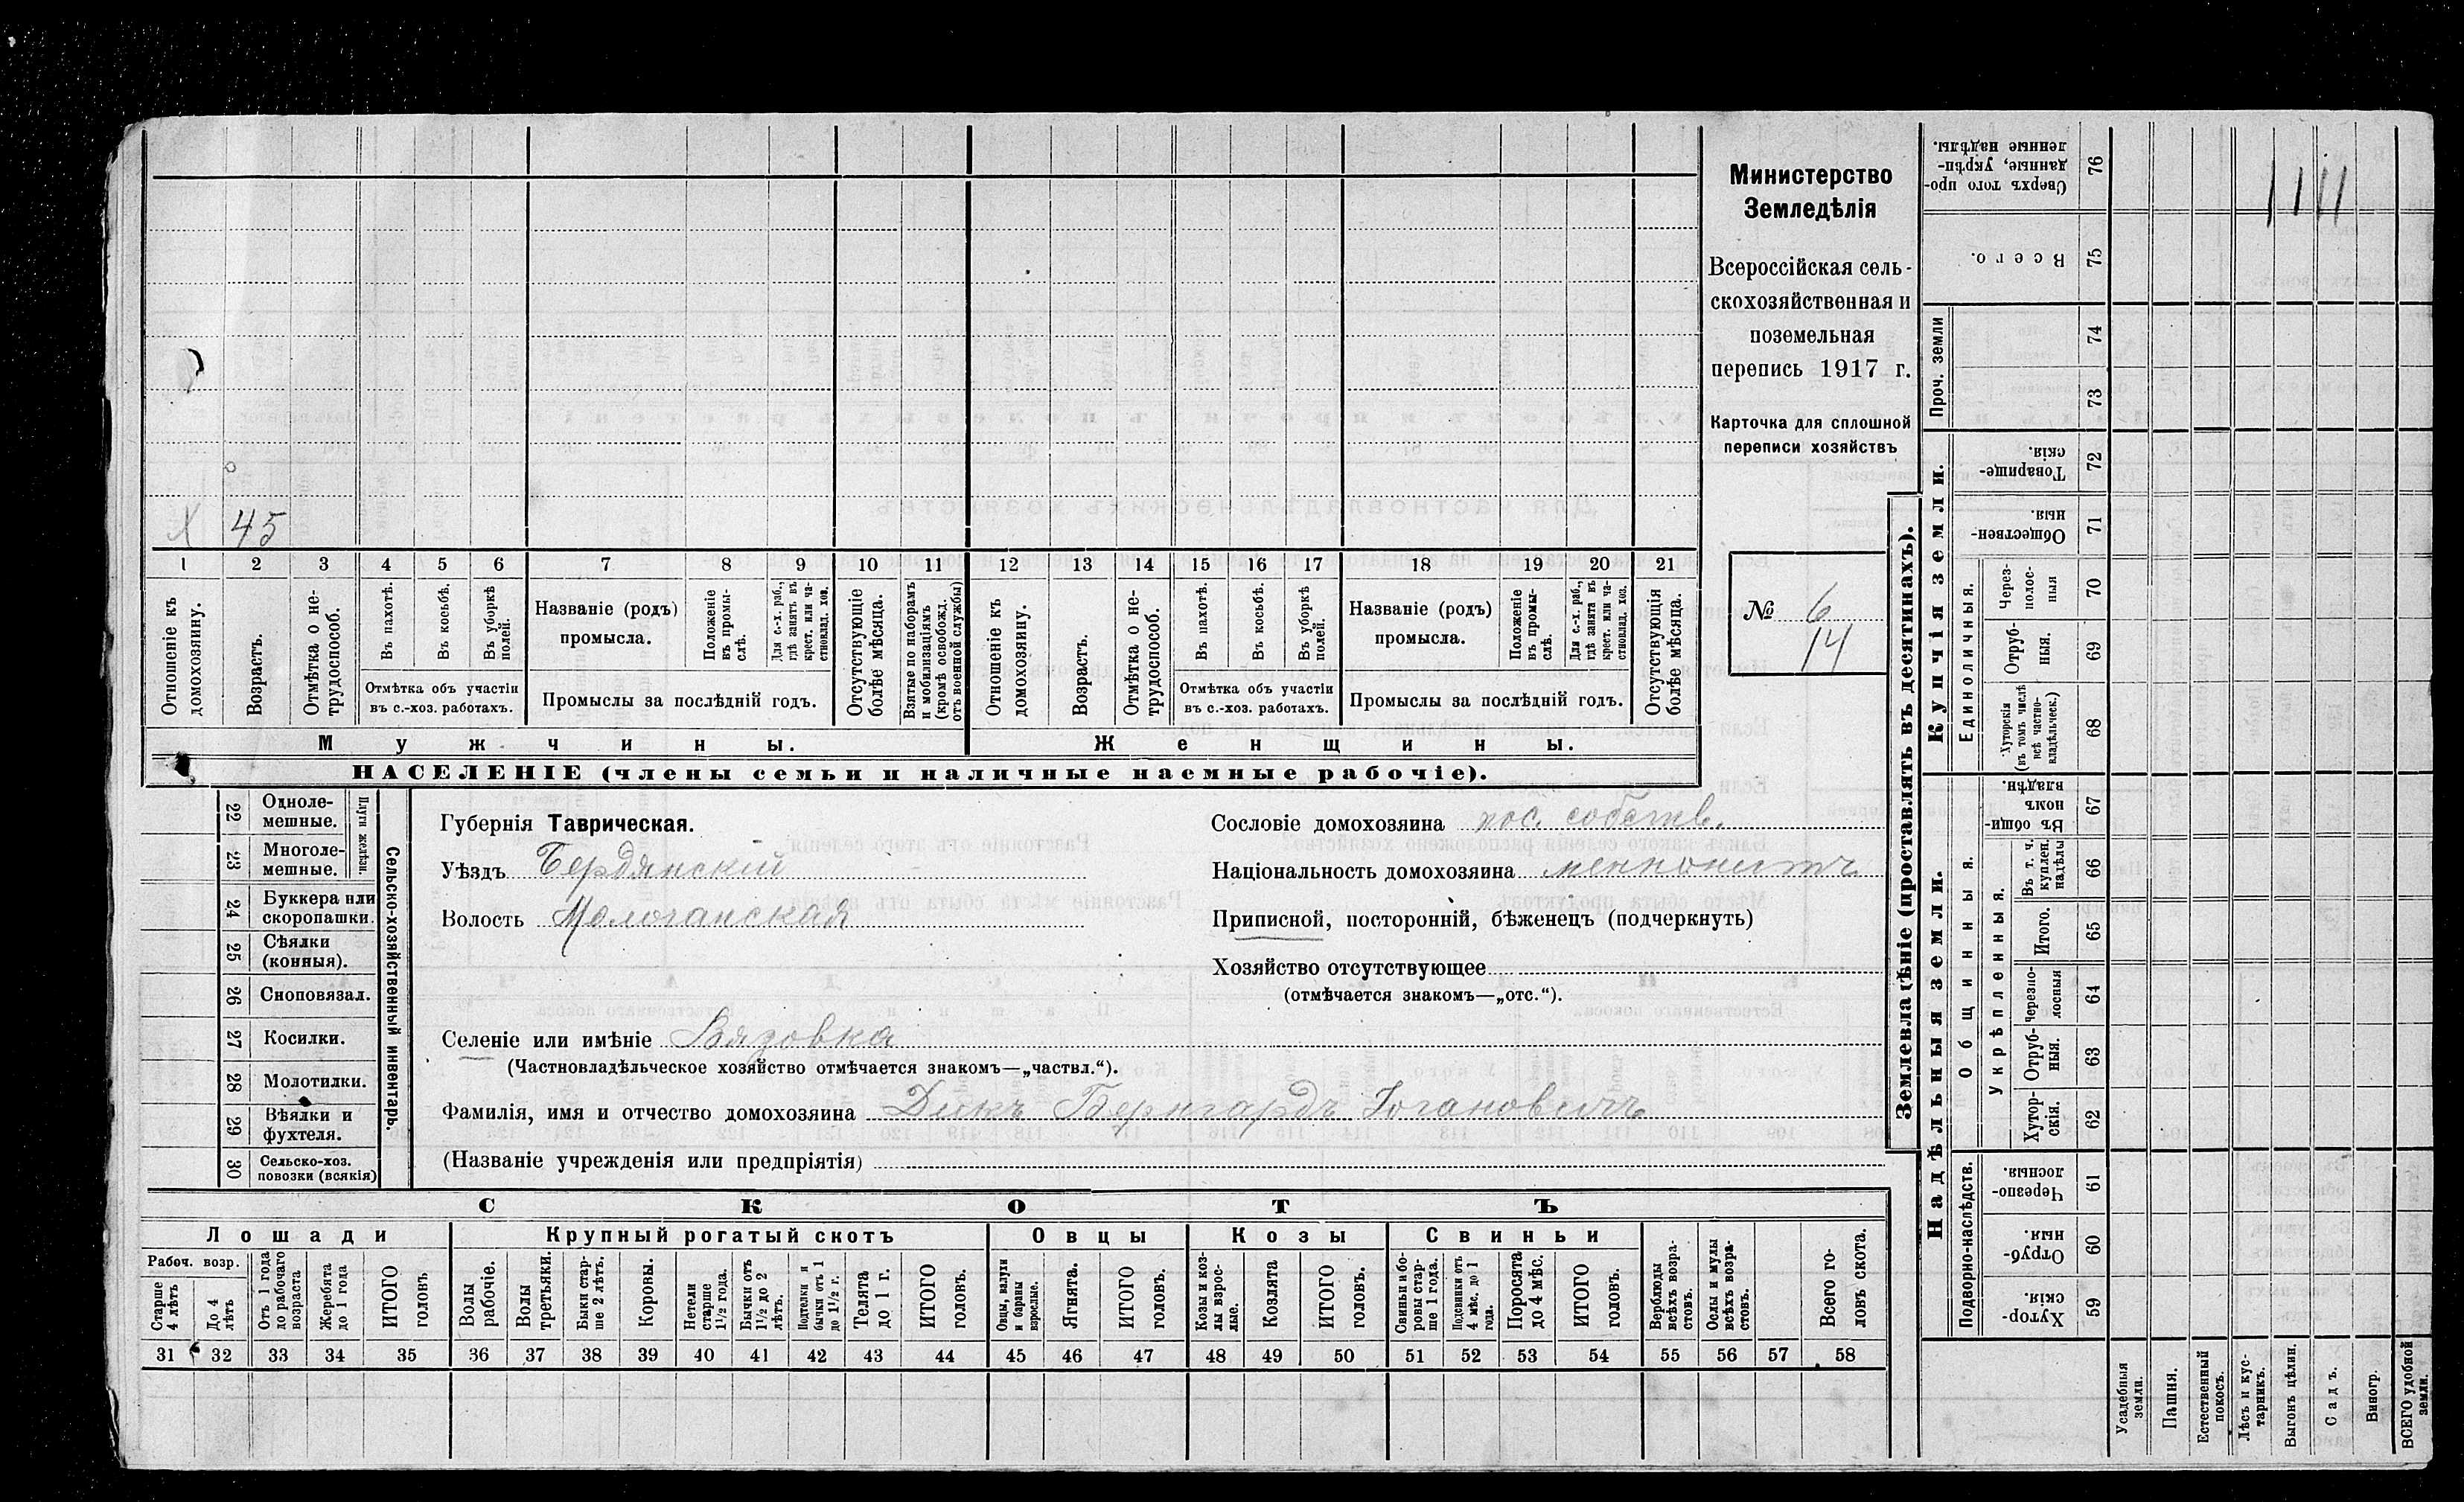 Министерство
Земледѣлія
Всероссійская сель-
скохозяйственная и
поземельная
перепись 1917 г.
Карточка для сплошной
переписи хозяйствъ
№ 6
14
X 45
1 2 3 4 5 6 7 8 9 10 11 12 13 14 15 16 17 18 19 20 21
Отношеніе къ домохозяину.
Возрастъ.
Отмѣтка о не-трудоспособ.
Въ пахотѣ.
Въ косьбѣ.
Въ уборкѣ полей.
Отмѣтка объ участіи
въ с.-хоз. работахъ.
Названіе (родъ)
промысла.
Положеніе въ промы-слѣ.
Для с.-х. раб., гдѣ занятъ въ крест. или ча-стновлад. хоз.
Промыслы за послѣдній годъ.
Отсутствующіе болѣе мѣсяца.
Взятые по наборамъ и мобилизаціямъ (кромѣ освобожд. отъ военной службы)
Отношеніе къ домохозяину.
Возрастъ.
Отмѣтка о не-трудоспособ.
Въ пахотѣ.
Въ косьбѣ.
Въ уборкѣ полей.
Отмѣтка объ участіи
въ с.-хоз. работахъ.
Названіе (родъ)
промысла.
Положеніе въ промы-слѣ.
Для с.-х. раб., гдѣ занята въ крест. или ча-стновлад. хоз.
Промыслы за послѣдній годъ.
Отсутствующія болѣе мѣсяца.
Мужчины.
Женщины.
НАСЕЛЕНІЕ (члены семьи и наличные наемные рабочіе).
22 Одноле-мешные.
23 Многоле-мешные.
Плуги желѣзн.
24 Буккера или скоропашки.
25 Сѣялки (конныя).
26 Сноповязал.
27 Косилки.
28 Молотилки.
29 Вѣялки и фухтеля.
30 Сельско-хоз. повозки (всякія)
Сельско-хозяйственный инвентарь.
Губернія Таврическая.
Уѣздъ Бердянскій
Волость Молочанская
Сословіе домохозяина пос. собств.
Національность домохозяина меннонитъ
Приписной, посторонній, бѣженецъ (подчеркнуть)
Хозяйство отсутствующее
(отмѣчается знакомъ—„отс.“).
Селеніе или имѣніе Вязовка
(Частновладѣльческое хозяйство отмѣчается знакомъ—„частвл.“).
Фамилія, имя и отчество домохозяина Дикъ Бернгардъ Іогановичъ
(Названіе учрежденія или предпріятія)
СКОТЪ
Лошади
Крупный рогатый скотъ
Овцы
Козы
Свиньи
Рабоч. возр.
Старше 4 лѣтъ
До 4 лѣтъ
Отъ 1 года до рабочаго возраста
Жеребята до 1 года
ИТОГО головъ
Волы рабочіе.
Волы третьяки.
Быки стар-ше 2 лѣтъ.
Коровы.
Нетели старше 1½ года.
Бычки отъ 1½ до 2 лѣтъ.
Подтелки и бычки отъ 1 до 1½ г.
Телята до 1 г.
ИТОГО головъ.
Овцы, валухи и бараны взрослые.
Ягнята.
ИТОГО головъ.
Козы и коз-лы взрос-лые.
Козлята
ИТОГО головъ.
Свиньи и бо-ровы стар-ше 1 года.
Подсвинки отъ 4 мѣс. до 1 года.
Поросята до 4 мѣс.
ИТОГО головъ.
Верблюды всѣхъ возра-стовъ.
Ослы и мулы всѣхъ возра-стовъ.
Всего го-ловъ скота.
31 32 33 34 35 36 37 38 39 40 41 42 43 44 45 46 47 48 49 50 51 52 53 54 55 56 57 58
Землевладѣніе (проставлять въ десятинахъ).
Сверхъ того про-данные, укрѣп-ленные надѣлы. 76
Всего. 75
Проч. земли
74
73
Купчія земли.
Товарище-скія. 72
Обществен-ныя. 71
Единоличныя.
Через-полос-ныя 70
Отруб-ныя. 69
Хуторскія (въ томъ числѣ всѣ частно-владѣльческ.) 68
Надѣльныя земли.
Общинныя.
Въ общин-номъ владѣн. 67
Укрѣпленныя.
Въ т. ч. куплен. надѣлы 66
Итого. 65
Черезпо-лосныя 64
Отруб-ныя. 63
Хутор-скія. 62
Подворно-наслѣдств.
Черезпо-лосныя. 61
Отруб-ныя. 60
Хутор-скія. 59
Усадебныя земли.
Пашня.
Естественный покосъ.
Лѣсъ и кус-тарникъ.
Выгонъ цѣлин.
Садъ.
Виногр.
ВСЕГО удобной земли.